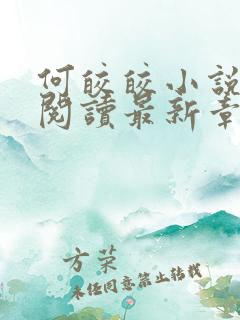 何皎皎小說
閱讀最新章
方菜
未任同意禁止转载